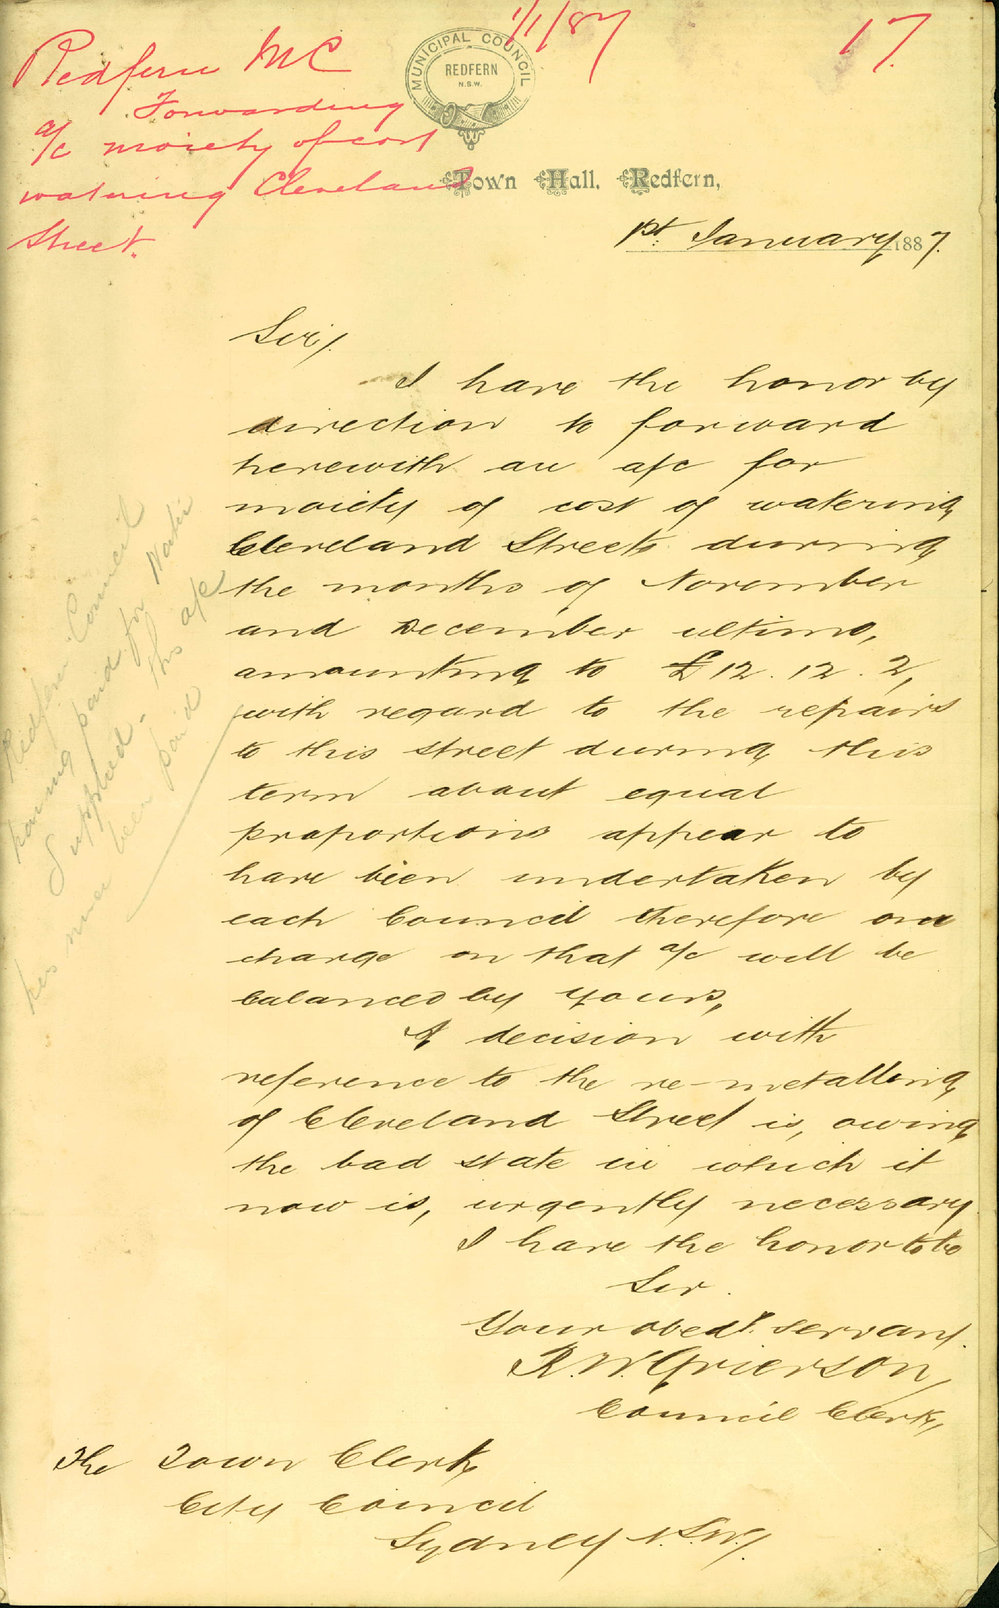 1/1/87
17.
Redfern MC
Forwarding
a/c moiety of cost
watering Cleveland
Street.
MUNICIPAL COUNCIL
REDFERN
N.S.W.
Town Hall, Redfern,
1st January 1887.
Sir,
I have the honor by
direction to forward
herewith an a/c for
moiety of cost of watering
Cleveland Street during
the months of November
and December ultimo,
amounting to £12.12.2,
with regard to the repairs
to this street during this
term about equal
proportions appear to
have been undertaken by
each Council therefore our
charge on that a/c will be
balanced by yours,
A decision with
reference to the re-metalling
of Cleveland Street is, owing
the bad state in which it
now is, urgently necessary
I have the honor to be
Sir.
Your obedt. servant.
R.W. Grierson,
Council Clerk,
The Town Clerk
City Council
Sydney N.S.W.
Redfern Council
having paid for Water
Supplied - this a/c
has been paid